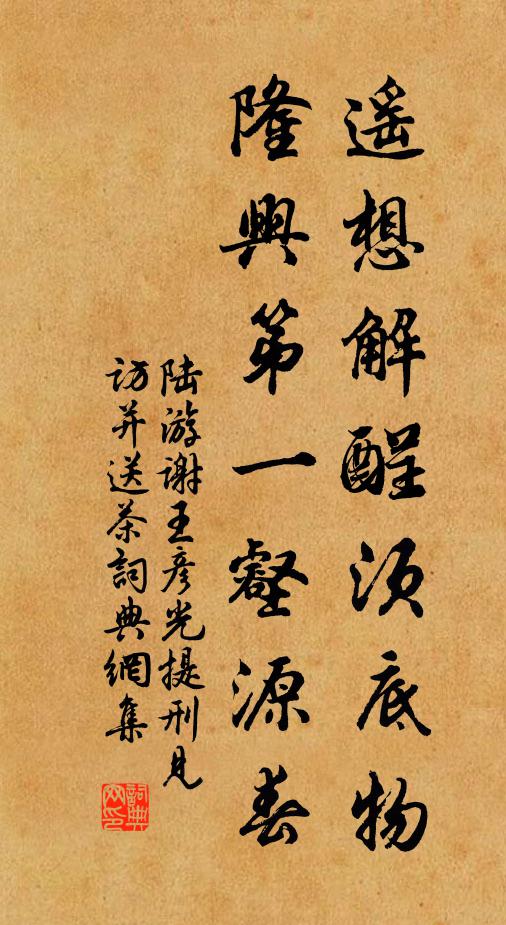 遥想解酲须底物
隆興第一壑源春
陆游谢王彦光提刑见
访并送茶詞典網集
詞典网印